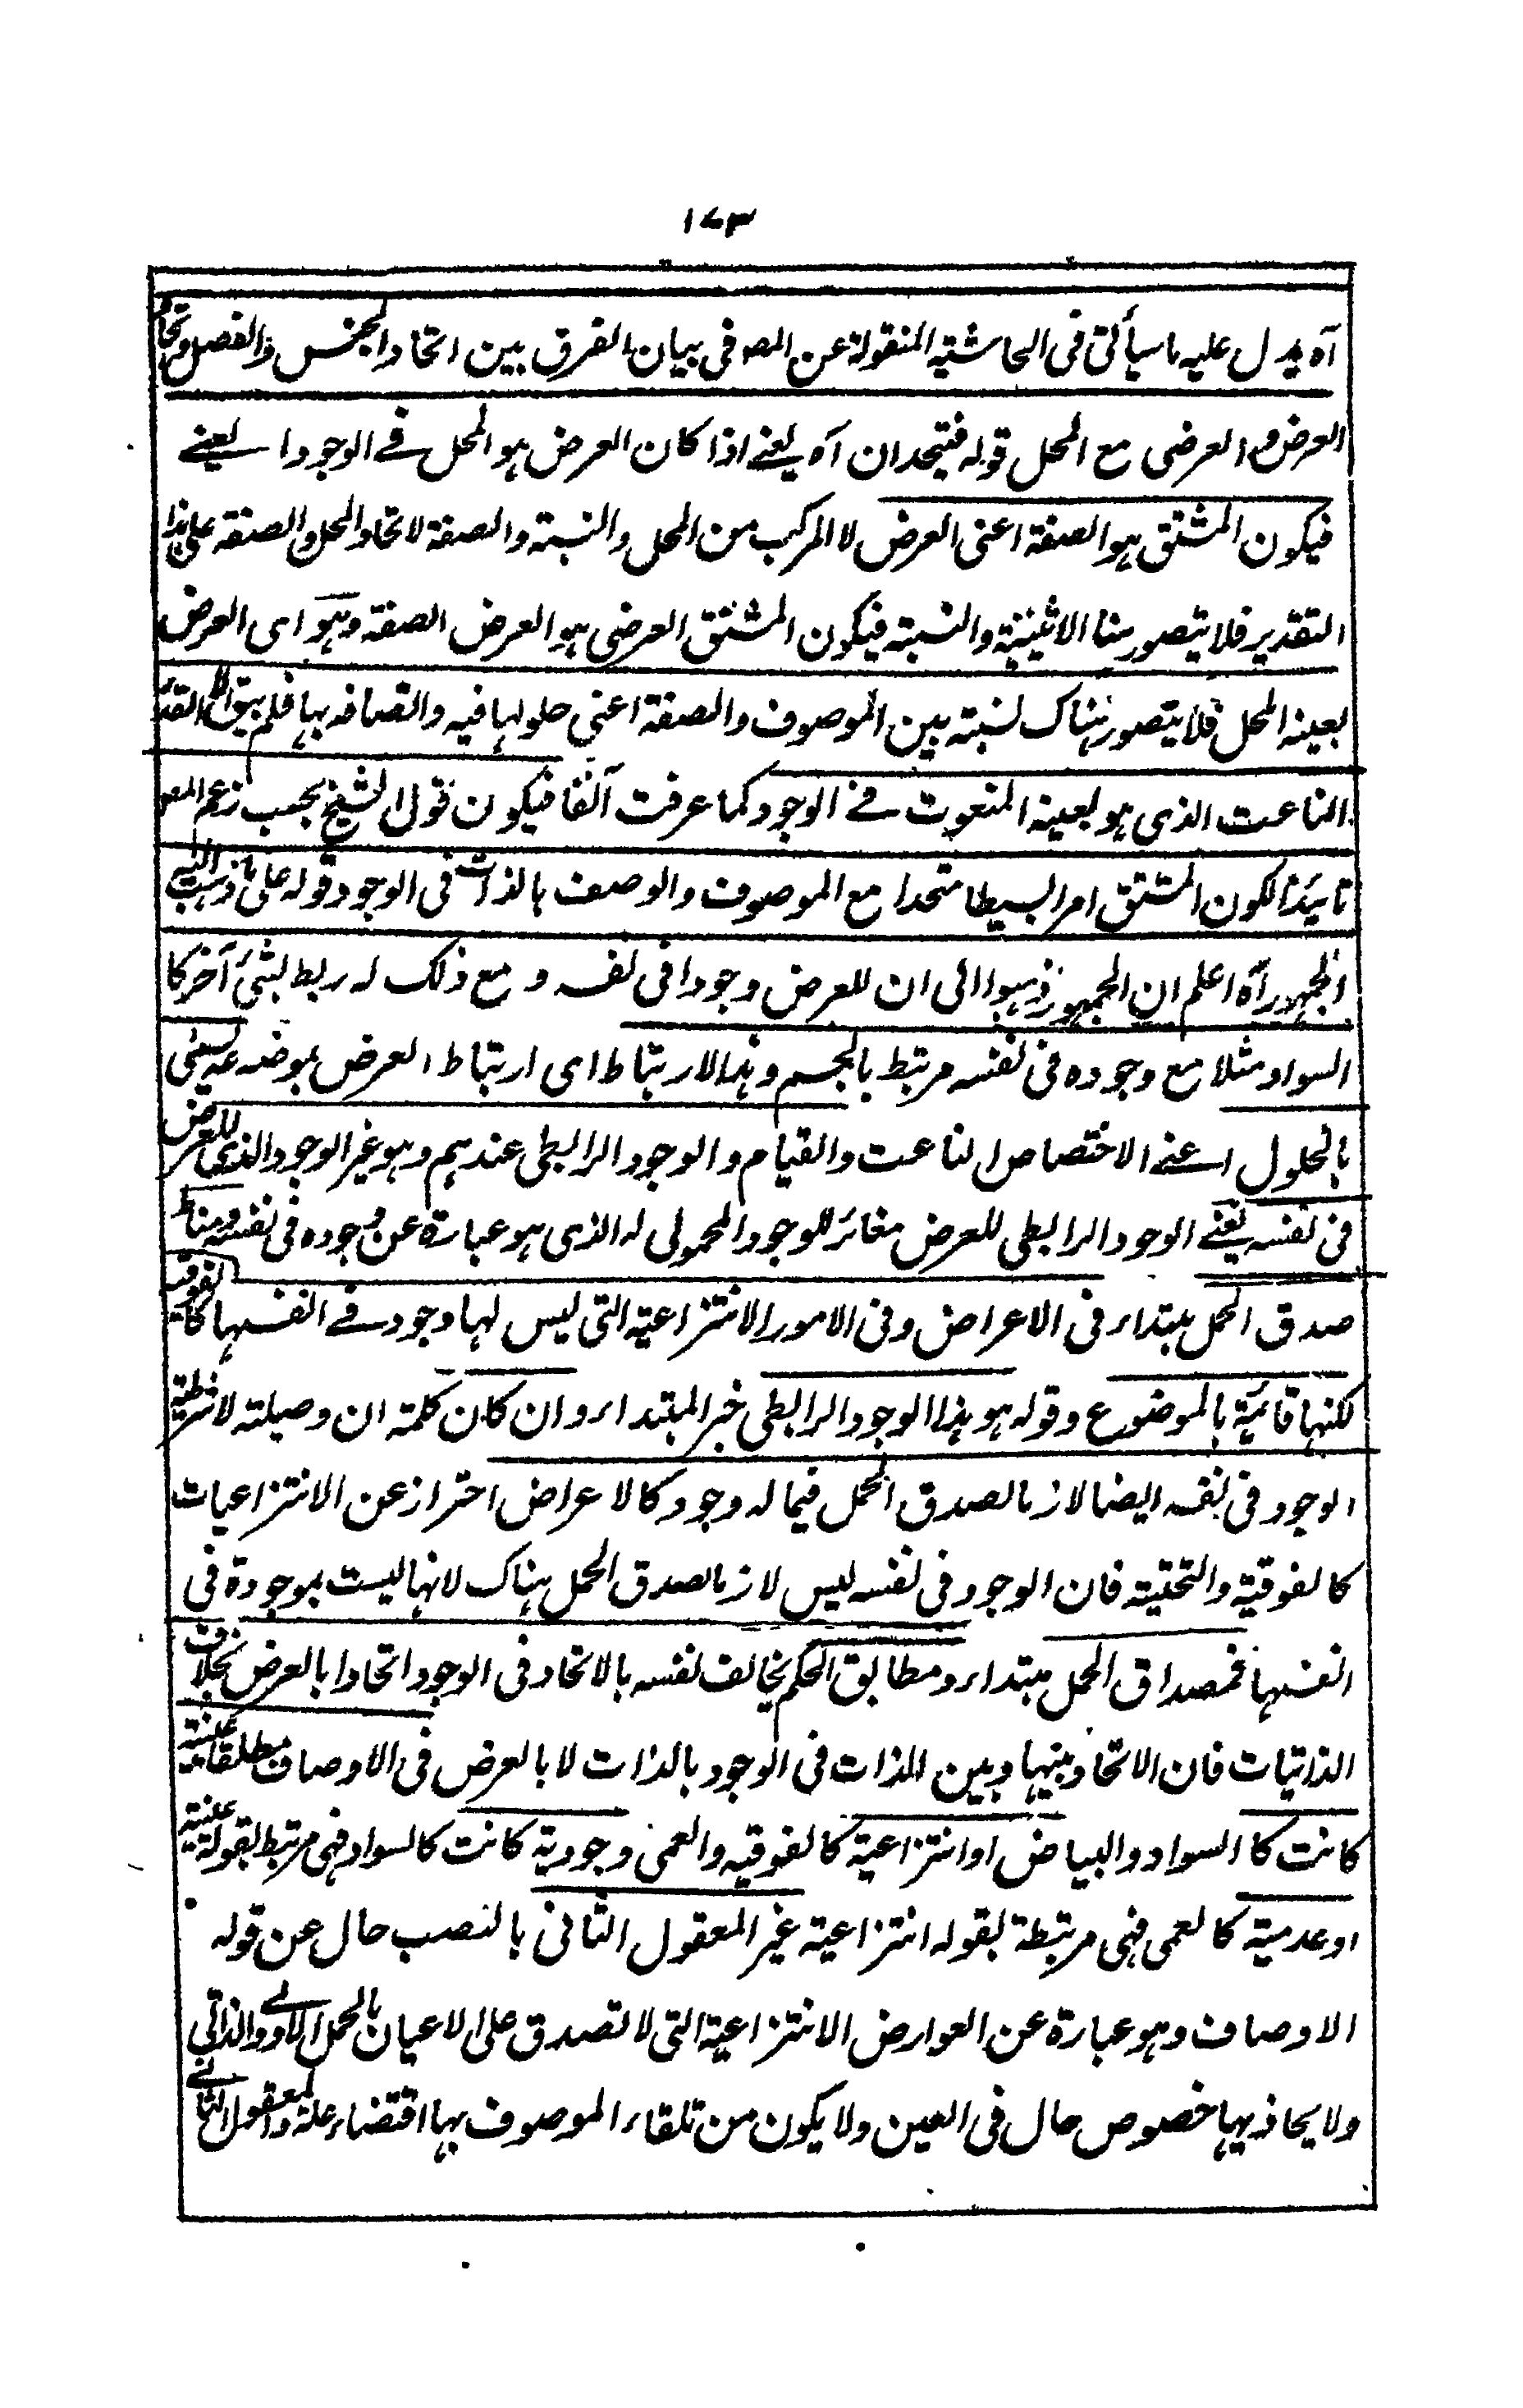 ١٧٣
آه يدل عليه ما سيأتى فى الحاشية المنقولة عن المص فى بيان الفرق بين اتحاد الجنس والفصل واتحاد
العرض والعرضى مع المحل قوله فيتحدان آه يعنے اذا كان العرض هو المحل فے الوجود ا يعنے
فيكون المشتق هو الصفة اعنى العرض لا المركب من المحل والنسبة والصفة لاتحاد المحل والصفة على هذا
التقدير فلا يتصور هنا الاثنينية والنسبة فيكون المشتق العرضى هو العرض الصفة وهو اى العرض
بعينه المحل فلا يتصور هناك نسبة بين الموصوف والصفة اعنى حلولها فيه واتصافه بها فلم يبق الا القدر
الناعت الذى هو بعينه المنعوت فے الوجود كما عرفت آنفا فيكون قول الشيخ بحسب زعم المص
تاييدًا لكون المشتق امرا بسيطا متحدا مع الموصوف والوصف بالذات فى الوجود قوله على ما ذهب اليه
الجمهور آه اعلم ان الجمهور ذهبوا الى ان للعرض وجودا فى نفسه و مع ذلك له ربط بشئ آخر كا
السواد مثلا مع وجوده فى نفسه مرتبط بالجسم وهذا الارتباط اى ارتباط العرض بموضوعه يسمى
بالحلول اعنے الاختصاص الناعت والقيام والوجود الرابطى عندهم وهو غير الوجود الذى للعرض
فى نفسه يعنے الوجود الرابطى للعرض مغائر للوجود المحمولى له الذى هو عبارة عن وجوده فى نفسه ومناط
صدق الحمل مبتداء فى الاعراض وفى الامور الانتزاعية التى ليس لها وجود فے انفسها كالفوقية
لكنها قائمة بالموضوع وقوله هو هذا الوجود الرابطى خبر المبتداء وان كان كلمة ان وصيلة لا شرطية
الوجود فى نفسه ايضا لازما لصدق الحمل فيما له وجود كالاعراض احتراز عن الانتزاعيات
كالفوقية والتحتية فان الوجود فى نفسه ليس لازما لصدق الحمل هناك لانها ليست بموجودة فى
انفسها فمصداق الحمل مبتداء ومطابق الحكم يخالف نفسه بالاتحاد فى الوجود اتحادا بالعرض بخلاف
الذاتيات فان الاتحاد بينها وبين الذات فى الوجود بالذات لا بالعرض فى الاوصاف مطلقا عينية
كانت كا السواد والبياض او انتزاعية كالفوقيه والعمى وجودية كانت كالسواد فهى مرتبط بقوله عينية
او عدمية كالعمى فهى مرتبطة بقوله انتزاعية غير المعقول الثانى بالنصب حال عن قوله
الاوصاف وهو عبارة عن العوارض الانتزاعية التى لا تصدق على الاعيان بالحمل الاولے والذاتى
ولا يحاذيها خصوص حال فى العين ولا يكون من تلقاء الموصوف بها اقتضاء علة والمعقول الثانے